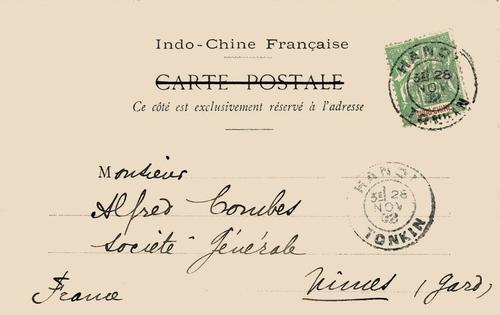 Indo-Chine Française
CARTE POSTALE
Ce côté est exclusivement réservé à l'adresse
HANOI
3E 28
NOV
TONKIN
INDO-CHINE
Monsieur
Alfred Combes
Société Générale
Nimes (Gard)
France
HANOI
3E 28
NOV
92
TONKIN